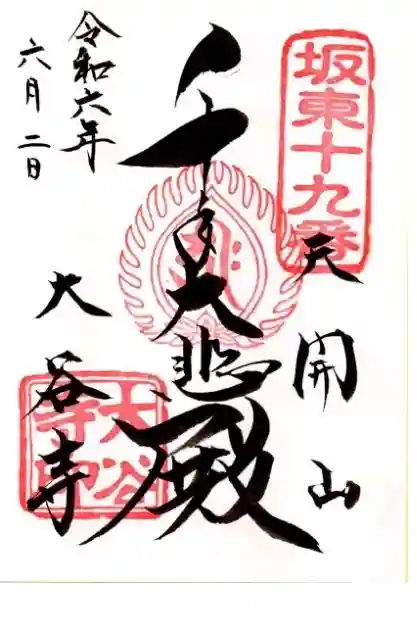 坂東十九番
天開山
千手大悲殿
大谷寺
大谷
寺印
令和六年
六月二日